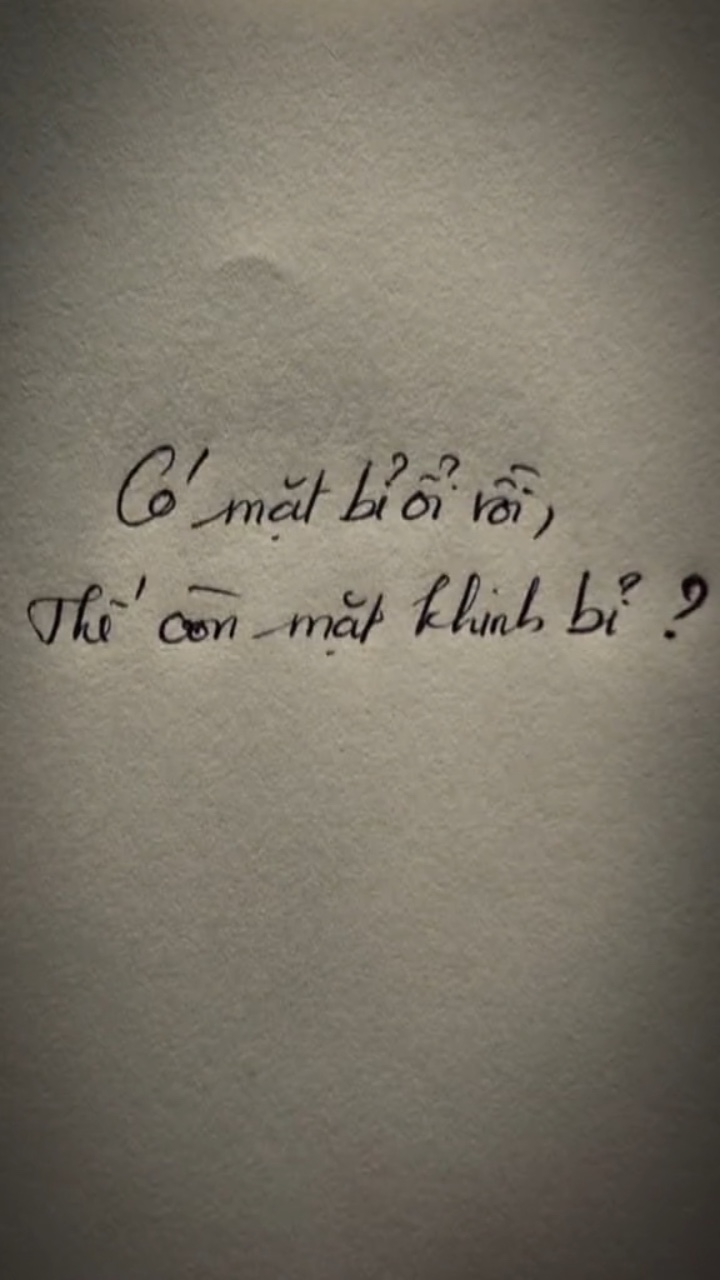 Có mặt bỉ ổi rồi,
Thế còn mặt khinh bỉ ?